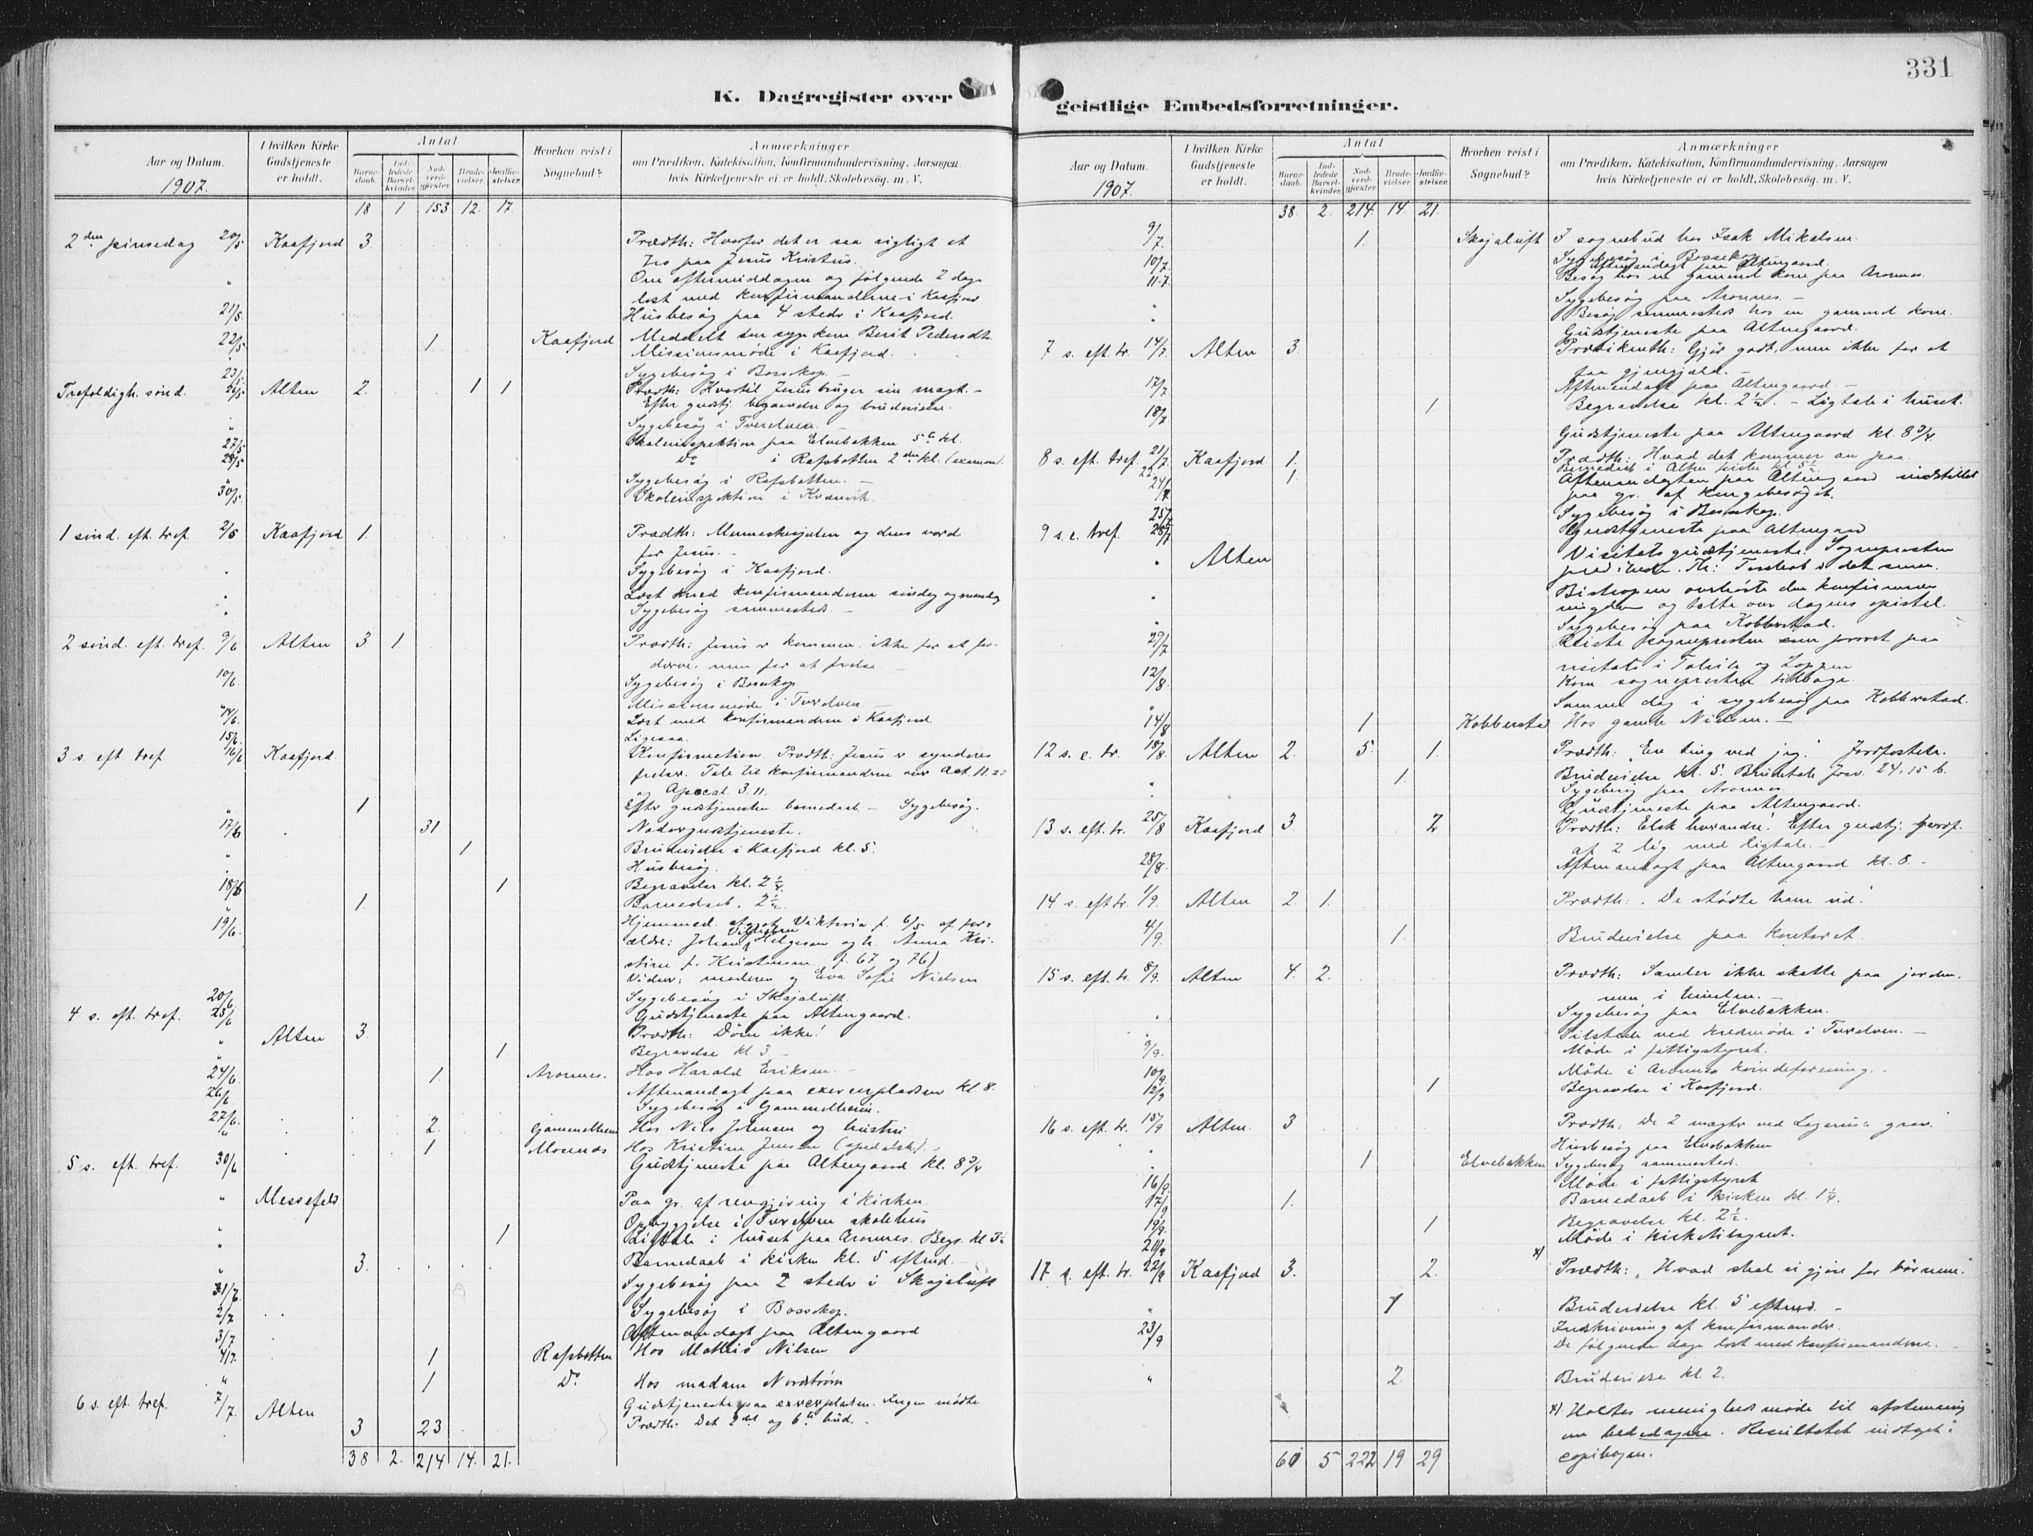 331
K. Dagregister over
geistlige Embedsforretninger.
Aar og Datum.
1907.
I hvilken Kirke Gudstjeneste er holdt.
Antal
Barnedaab.
Indledede Barselkvinder.
Nadverdgjester.
Brudevielser.
Jordfæstelser.
Hvorhen reist i Sognebud?
Anmærkninger
om Prædiken, Katekisation, Konfirmandundervisning, Aarsagen
hvis Kirketjeneste ei er holdt, Skolebesøg m. V.
18 1 153 12. 17.
2den pinsedag 20/5 Kaafjord 3 Prædth: Hvorfor det er saa vigtigt at
tro paa Jesus Kristus.
" Om eftermiddagen og følgende 2 dage
læst med konfirmanderne i Kaafjord
21/5 Husbesøg paa 4 steder i Kaafjord.
22/5 1 Kaafjord Meddelt den syge kone Berit Pedersdtr.
" Missionsmøde i Kaafjord.
23/5 Sygebesøg i Bossekop.
Trefoldigh. sønd. 26/5 Alten 2. 1 1 Prædth: Hvortil Jesus bruger sin magt.
Efter gudstj. begravelse og brudevielse.
" Sygebesøg i Tverelven.
27/5 Skoleinspektion paa Elvebakken 5te kl.
28/5 Do i Rafsbotten 2den kl. (examen).
" Sygebesøg i Rafsbotten.
30/5 Skoleinspektion i Kvænvik.
1 sønd. eft. tref. 2/6 Kaafjord 1. Prædth: Menneskesjælen og dens værd
for Jesus.
" Sygebesøg i Kaafjord.
" Læst med konfirmanderne søndag og mandag
" Sygebesøg sammesteds.
2 sønd. eft. tref. 9/6 Alten 3 1 Prædth: Jesus er kommen ikke for at for-
derve, men for at frelse.
10/6 Sygebesøg i Bossekop
" Missionsmøde i Tverelven.
14/6 Læst med konfirmandern i Kaafjord.
15/6 Ligesaa.
3 s. eft tref 16/6 Kaafjord Konfirmation Prædth: Jesus er synderes
frelser. Tale til konfirmanderne over Act. 11.23
og Apocal. 3.11.
" 1 Efter gudstjenesten barnedaab - Sygebesøg.
17/6 31 Nadvergudstjeneste.
" 1 Brudevielse i Kaafjord kl. 5.
" Husbesøg.
18/6 1 Begravelse kl. 2 1/4.
" 1 Barnedaab. 2 1/2
19/6. Hjemmed. Viktoria f. 6/5 af for-
ældre: Johan Vilhelm Helgesen og h. Anna Kri-
stine f. Kristensen f. 67 og 76)
Vidner: moderen og Eva Sofie Nielsen
20/6 Sygebesøg i Skajaluft
4 s. eft. tref. 23/6 Gudstjeneste paa Altengaard.
" Alten 3. Prædth: Døm ikke!
" 1 Begravelse kl. 3.
24/6. 1 Aronnes. Hos Harald Eriksen.
26/6 Aftenandagt paa exercerpladsen kl. 8.
" Sygebesøg i Gammelheim.
27/6 2. Gammelheim Hos Nils Johnsen og hustru
" 1 Mornæs Hos Kristine Jensen (spedalsk).
5 s. eft. tref. 30/6 Gudstjeneste paa Altengaard kl. 8 3/4
" Messefald Paa gr. af rengjøring i kirken.
" Opbyggelse i Tverelven skolehus
" 1 Ligtale i huset paa Aronnes. Begr. kl 3 1/2
" 3. Barnedaab i kirken kl. 5 eftmd.
1/7 Sygebesøg paa 2 steder i Skajaluft
2/7 Sygebesøg i Bossekop.
3/7 Aftenandagt paa Altengaard
4/7. 1 Rafsbotten Hos Mathis Nilsen
" 1 Do Hos madam Nordstrøm
6 s. eft. tref. 7/7 Gudstjeneste paa exercerpladsen. Ingen mødte
Alten 3 23 Prædth: Det 2det og 6te bud.
38 2. 214 14. 21.
Aar og Datum.
1907.
I hvilken Kirke Gudstjeneste er holdt.
Antal
Barnedaab.
Indledede Barselkvinder.
Nadverdgjester.
Brudevielser.
Jordfæstelser.
Hvorhen reist i Sognebud?
Anmærkninger
om Prædiken, Katekisation, Konfirmandundervisning, Aarsagen
hvis Kirketjeneste ei er holdt, Skolebesøg m. V.
38. 2. 214. 14. 21.
9/7 1. Skajaluft I sognebud hos Isak Mikelsen.
10/7 Sygebesøg i Bossekop
Aftenandagt paa Altengaard.
11/7 Besøg hos en gammel kone paa Aronnes.
Sygebesøg paa Aronnes.
" Besøg sammesteds hos en gammel kone.
Gudstjeneste paa Altengaard.
7 s. eft. tr. 14/7 Alten 3. Prædikenth: Gjør godt, men ikke for at
faa gjengjæld.
17/7 Aftenandagt paa Altengaard.
18/7 1 Begravelse kl. 2 1/2. - Ligtale i huset.
Gudstjeneste paa Altengaard kl. 8 3/4
8 s. eft. tref. 21/7 Kaafjord 1. Prædth: Hvad det kommer an paa.
1. Barnedaab i Alten kirke kl. 5 1/2
24/7 Aftenandagten paa Altengaard indstillet
paa gr. af kongebesøget.
25/7 Sygebesøg i Bossekop.
9 s. e. tref. 28/7 Gudstjeneste paa Altengaard
" Alten Visitatsgudstjeneste. Sognepresten
prædikede. Th: Troskab i det smaa.
" Biskopen overhørte den konfirmerede
ungdom og talte over dagens epistel.
" Sygebesøg paa Kobberstad.
29/7 Reiste sognepresten som provst paa
visitats i Talvik og Loppen
12/8 Kom sognepresten tilbage.
" Samme dag i sygebesøg paa Kobberstad.
14/8 1 Kobberstad Hos gamle Nielsen.
12 s. e. tr. 18/8 Alten 2. 5. 1. Prædth: "En ting ved jeg." Jordfæstelse.
" 1. Brudevielse kl. 5. Brudetale Josv. 24.15 b.
" Sygebesøg paa Aronnes.
Gudstjeneste paa Altengaard.
13 s. eft. tr. 25/8 Kaafjord 3 2 Prædth: Elsk hverandre! Efter gudstj. jordf.
af 2 lig med ligtale.
28/8. Aftenandagt paa Altengaard kl. 8.
14 s. eft tr. 1/9. Alten 2. 1. Prædth: De stødte ham ud!
4/9. 1. Brudevielse paa kontoret.
15 s. eft tr. 8/9. Alten 4. 2. Prædth: Samler ikke skatte paa jorden.
men i himlen.
" Sygebesøg paa Elvebakken.
" Tilstede ved kredsmøde i Tverelven.
9/9. Møde i fattigstyret.
10/9 Møde i Aronnes kvindeforening.
12/9 1 Begravelse i Kaafjord.
16 s. eft. tr. 15/9 Alten. 3 Prædth: De 2 magter ved Lazarus's grav.
Husbesøg paa Elvebakken
" 1 Elvebakken Sygebesøg sammested.
16/9 Møde i fattigstyret
17/9 1. Barnedaab i kirken kl. 1 1/4.
19/9. 1 Begravelse kl. 2 1/2.
20/9 Møde i kirketilsynet.
17 s. eft. tr. 22/9 Kaafjord 3. 2. x) Prædth: "Hvad skal vi gjøre for børnene."
" 1 Brudevielse kl. 5 eftmd.
23/9 Indskrivning af konfirmander.
De følgende dage læst med konfirmanderne.
" 2. Brudevielse kl 2.
x) Holdtes menighedsmøde til afstemning
om bededagene. Resultatet indtaget i
copibogen.
60 5 222 19 29